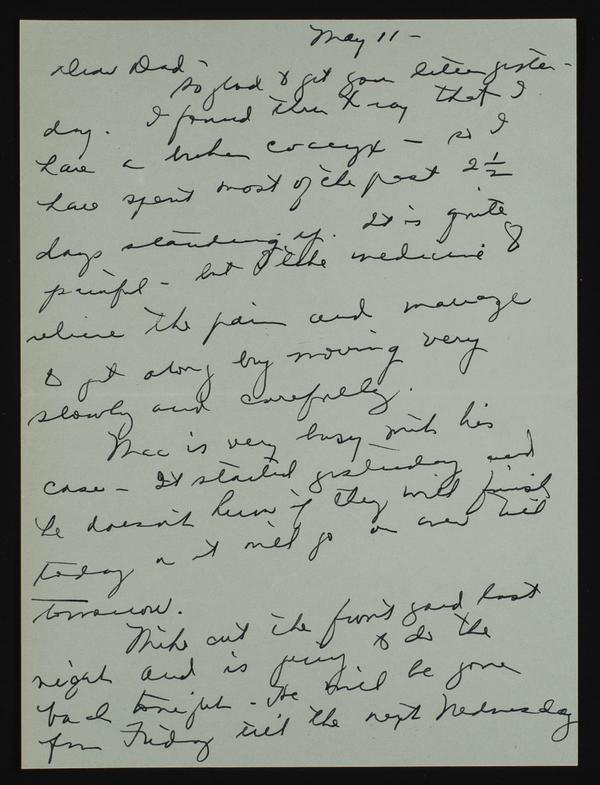 May 11 -
Dear Dad -
So glad to get your letter yester-
day. I found thru X ray that I
have a broken coccyx - so I
have spent most of the past 2 1/2
days standing up. It is quite
painful - but I take medicine to
relieve the pain and manage
to get along by moving very
slowly and carefully.
Mac is very busy with his
case - It started yesterday and
he doesn't know if they will finish
today or it will go on over till
tomorrow.
Mike cut the front yard last
night and is going to do the
back tonight - He will be gone
from Friday till the next Wednesday